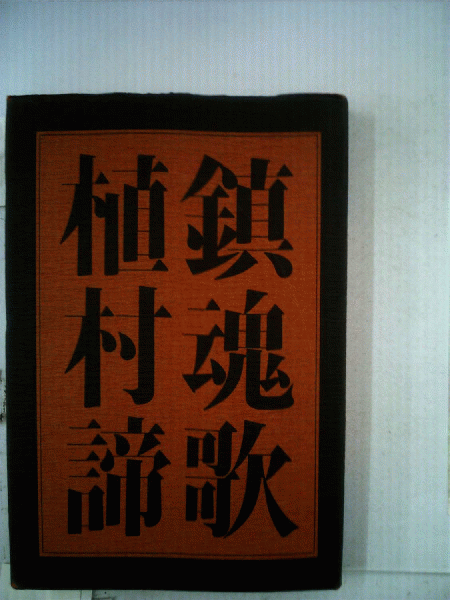 鎮魂歌
植村諦